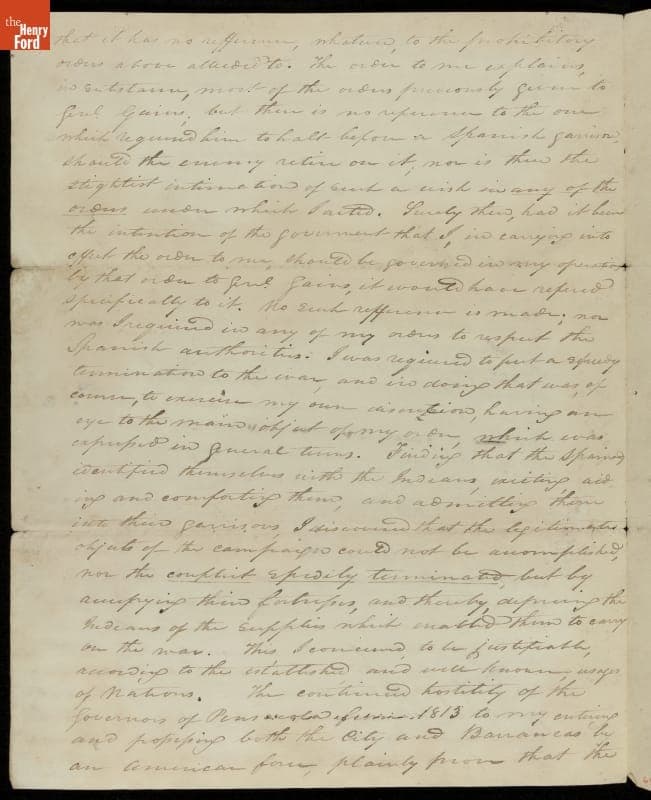 the
Henry
Ford
that it has no refference, whatever, to the prohibitory
orders above alluded to. The order to me explains,
in substance, most of the orders previously given to
Genl Gains; but there is no reference to the one
which required him to halt before a Spanish garrison,
should the enemy retire on it, nor is there the
slightest intimation of such a wish in any of the
orders under which I acted. Surely then, had it been
the intention of the goverment that I, in carrying into
effect the order to me, should be governed in my operations
by that order to Genl Gains, it would have refered
specifically to it. No such refference is made; nor
was I required in any of my orders to respect the
Spanish authorities. I was required to put a speedy
termination to the war and in doing that was, of
course, to exercise my own discretion, having an
eye to the main object of my order, which was
expressed in general terms. Finding that the Spaniards
identified themselves with the Indians, exciting aid-
ing and comforting them, and admitting them
into their garrisons, I discovered that the legitimate
objects of the campaign could not be accomplished,
nor the conflict speedily terminated, but by
occupying their fortresses, and thereby, depriving the
Indians of the supplies which enabled them to carry
on the war. This I conceived to be justifiable,
according to the established and well known, usages
of Nations. The continued hostility of the
Governors of Pensacola 1813 to my entering
and possessing both the City and Barrancas by
an American force, plainly prove that the